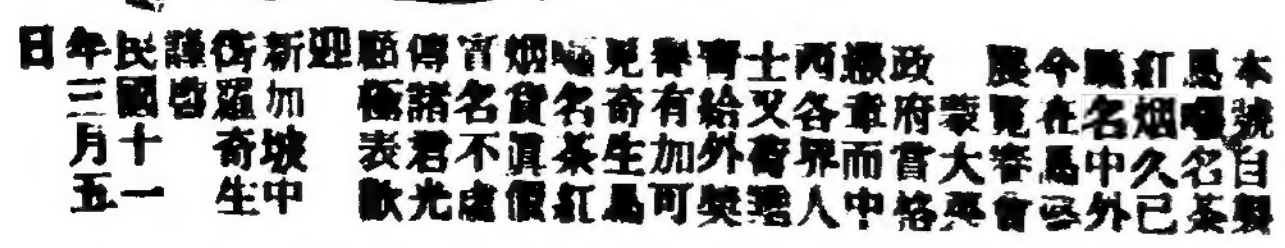 本號自製
馬名茶
紅烟久已
馳名中外
今在馬
展覽賽會
蒙大英
政府賞給
章而中
西各界人
士又
給外奬
譽有加可
見奇生馬
名茶紅
烟貨眞價
名不虛
傳諸君光
顧極表歡
迎
新加坡中
街羅奇生
謹啓
民國十一
年三月五
日